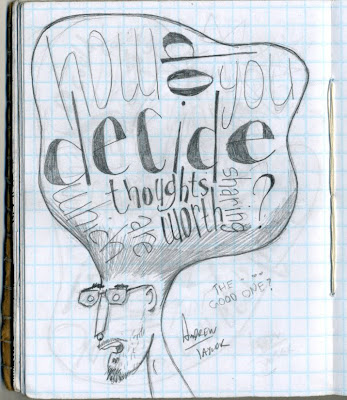 how do you
decide
which thoughts
are worth sharing ?
THE ....
GOOD ONE?
ANDREW
TAYLOR